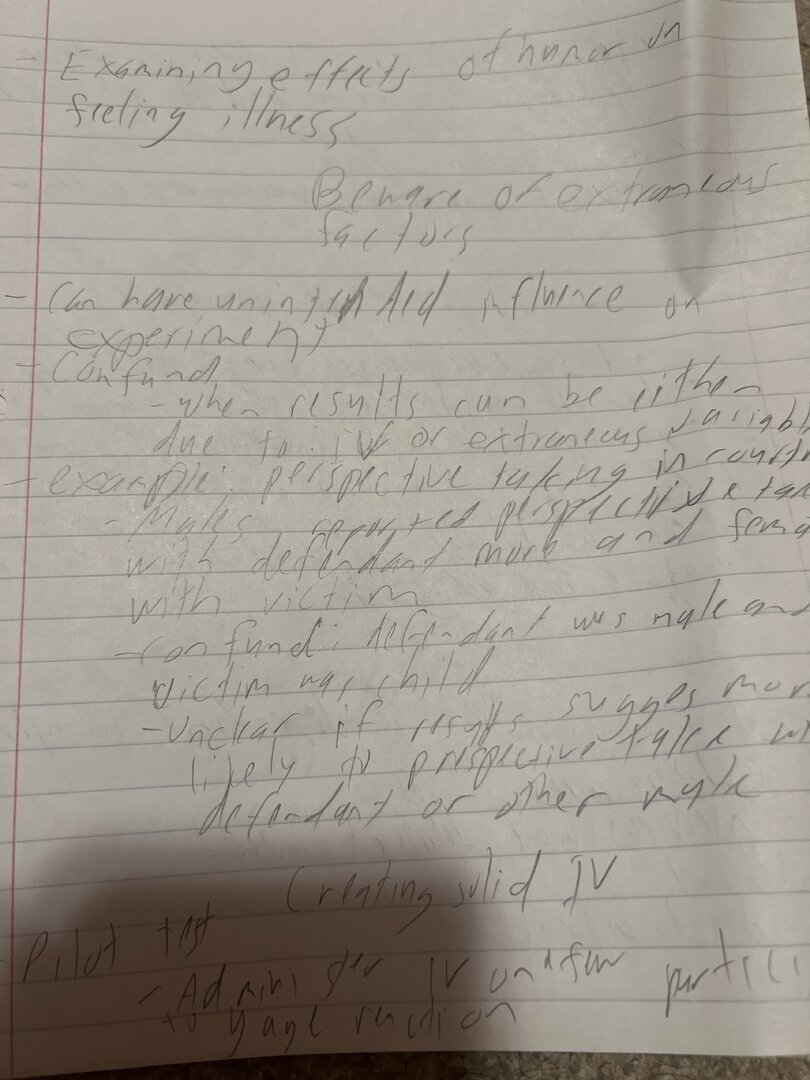 - Examining effects of humor on
feeling illness
Beware of extraneous
factors
- Can have unintended influence on
experiment
- Confund
- When results can be either
due to IV or extraneous variabl
- example: perspective taking in courtr
- Males reported perspective ta
with defendant more and fema
with victim
- Confund: defendant was male and
victim was child
- Unclear if results sugges mor
likely to prespective taker wi
defendant or other male
Creating solid IV
- Pilot test
- Administer IV on a few partici
to gage reaction